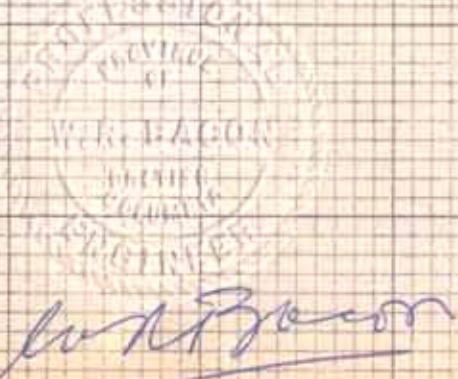 PROFESSIONAL
PROVINCE
OF
W. R. BACON
BRITISH
COLUMBIA
ENGINEER
W R Bacon